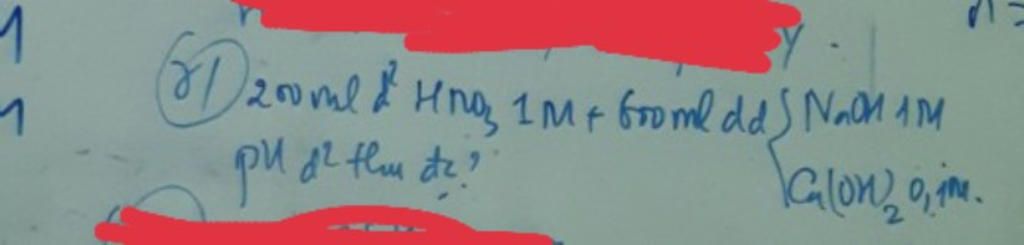 8) 200ml d² HNO₃ 1M + 600ml dd { NaOH 1M
Ca(OH)₂ 0,1M.
pH d² thu đc?